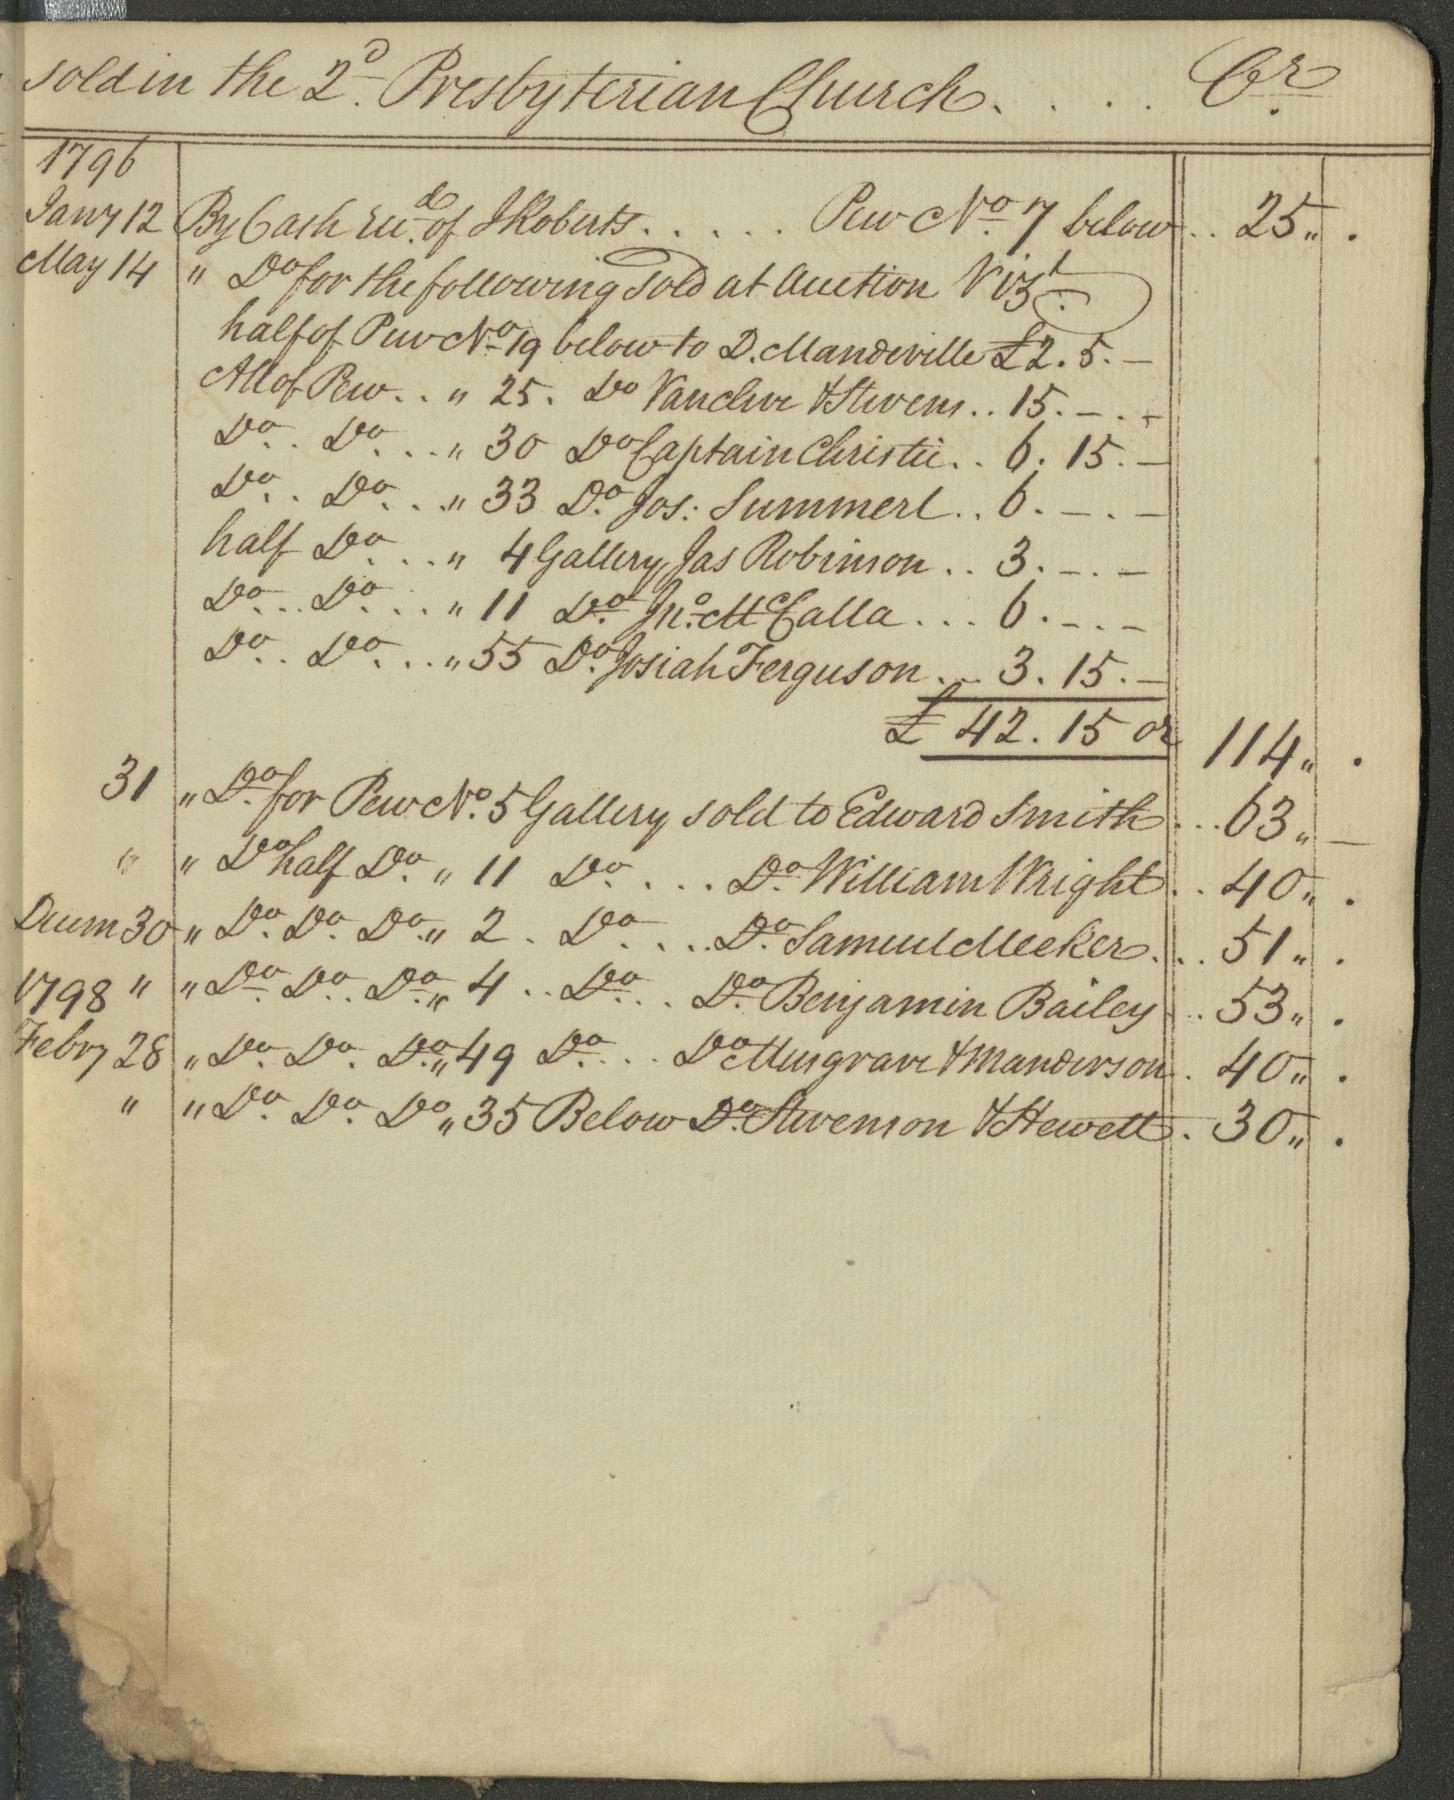 sold in the 2d. Presbyterian Church. . . . Cr.
1796
Jany 12 By Cash Recd. of J Roberts. . . . . Pew No. 7 below . . 25 „ .
May 14 " Do for the following sold at Auction Vizt.
half of Pew No 19 below to D. Mandeville £2. 5. —
All of Pew . . " 25. Do Vancleve & Stevens . . 15. — . —
Do. . Do. . . " 30 Do Captain Christie . . 6. 15. —
Do. . Do. . . " 33 Do. Jos: Summerl . . 6. — . —
half Do. . . " 4 Gallery Jas Robinson . . 3. — . —
Do. . . Do. . . " 11 Do. Jno. McCalla . . . 6. — . —
Do. . Do. . . " 55 Do. Josiah Ferguson . . 3. 15. —
£ 42. 15 or 114 „ .
31 " Do. for Pew No. 5 Gallery sold to Edward Smith . . . 63 „ —
" " Do half Do. " 11 Do. . . . Do. William Wright . . 40 „ .
Decem 30 " Do. Do. Do. " 2 . Do. . . . Do. Samuel Meeker . . . 51 „ .
1798 " " Do. Do. Do. " 4 . . Do. . . Do. Benjamin Bailey . . 53 „ .
Febry 28 " Do. Do. Do. " 49 Do. . . Do Musgrave & Manderson . 40 „ .
" " Do. Do. Do " 35 Below Do. Stevenson & Hewett . 30 „ .